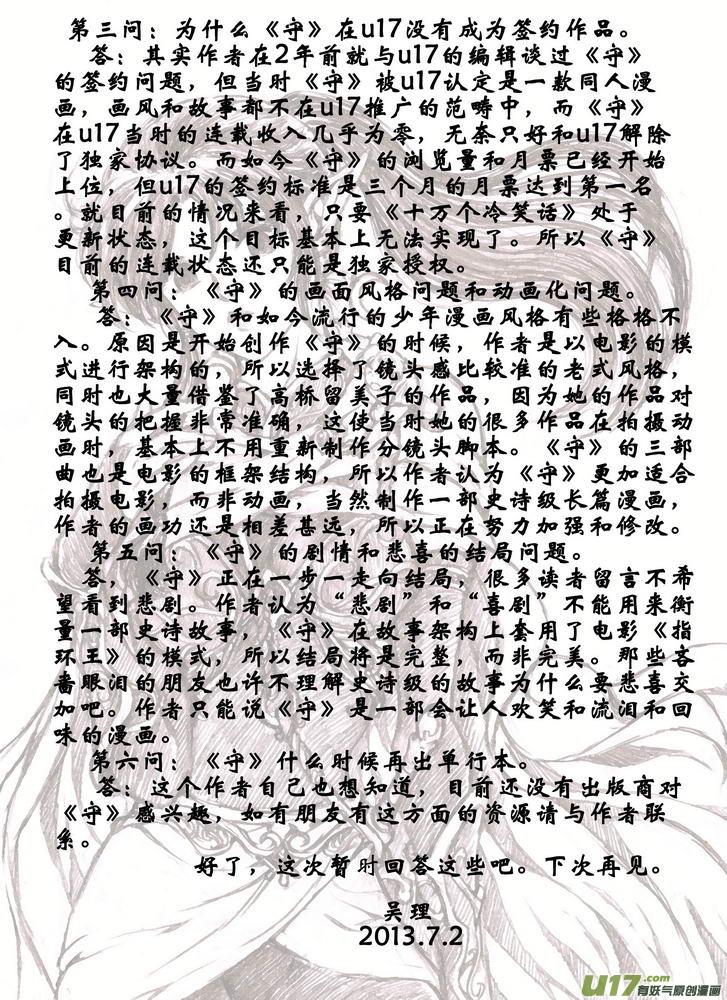 第三问：为什么《守》在u17没有成为签约作品。
答：其实作者在2年前就与u17的编辑谈过《守》
的签约问题，但当时《守》被u17认定是一款同人漫
画，画风和故事都不在u17推广的范畴中，而《守》
在u17当时的连载收入几乎为零，无奈只好和u17解除
了独家协议。而如今《守》的浏览量和月票已经开始
上位，但u17的签约标准是三个月的月票达到第一名
。就目前的情况来看，只要《十万个冷笑话》处于
更新状态，这个目标基本上无法实现了。所以《守》
目前的连载状态还只能是独家授权。
第四问：《守》的画面风格问题和动画化问题。
答：《守》和如今流行的少年漫画风格有些格格不
入。原因是开始创作《守》的时候，作者是以电影的模
式进行架构的，所以选择了镜头感比较准的老式风格，
同时也大量借鉴了高桥留美子的作品，因为她的作品对
镜头的把握非常准确，这使当时她的很多作品在拍摄动
画时，基本上不用重新制作分镜头脚本。《守》的三部
曲也是电影的框架结构，所以作者认为《守》更加适合
拍摄电影，而非动画，当然制作一部史诗级长篇漫画，
作者的画功还是相差甚远，所以正在努力加强和修改。
第五问：《守》的剧情和悲喜的结局问题。
答，《守》正在一步一走向结局，很多读者留言不希
望看到悲剧。作者认为“悲剧”和“喜剧”不能用来衡
量一部史诗故事，《守》在故事架构上套用了电影《指
环王》的模式，所以结局将是完整，而非完美。那些吝
啬眼泪的朋友也许不理解史诗级的故事为什么要悲喜交
加吧。作者只能说《守》是一部会让人欢笑和流泪和回
味的漫画。
第六问：《守》什么时候再出单行本。
答：这个作者自己也想知道，目前还没有出版商对
《守》感兴趣，如有朋友有这方面的资源请与作者联
系。
好了，这次暂时回答这些吧。下次再见。
吴理
2013.7.2
U17.com
有妖气原创漫画